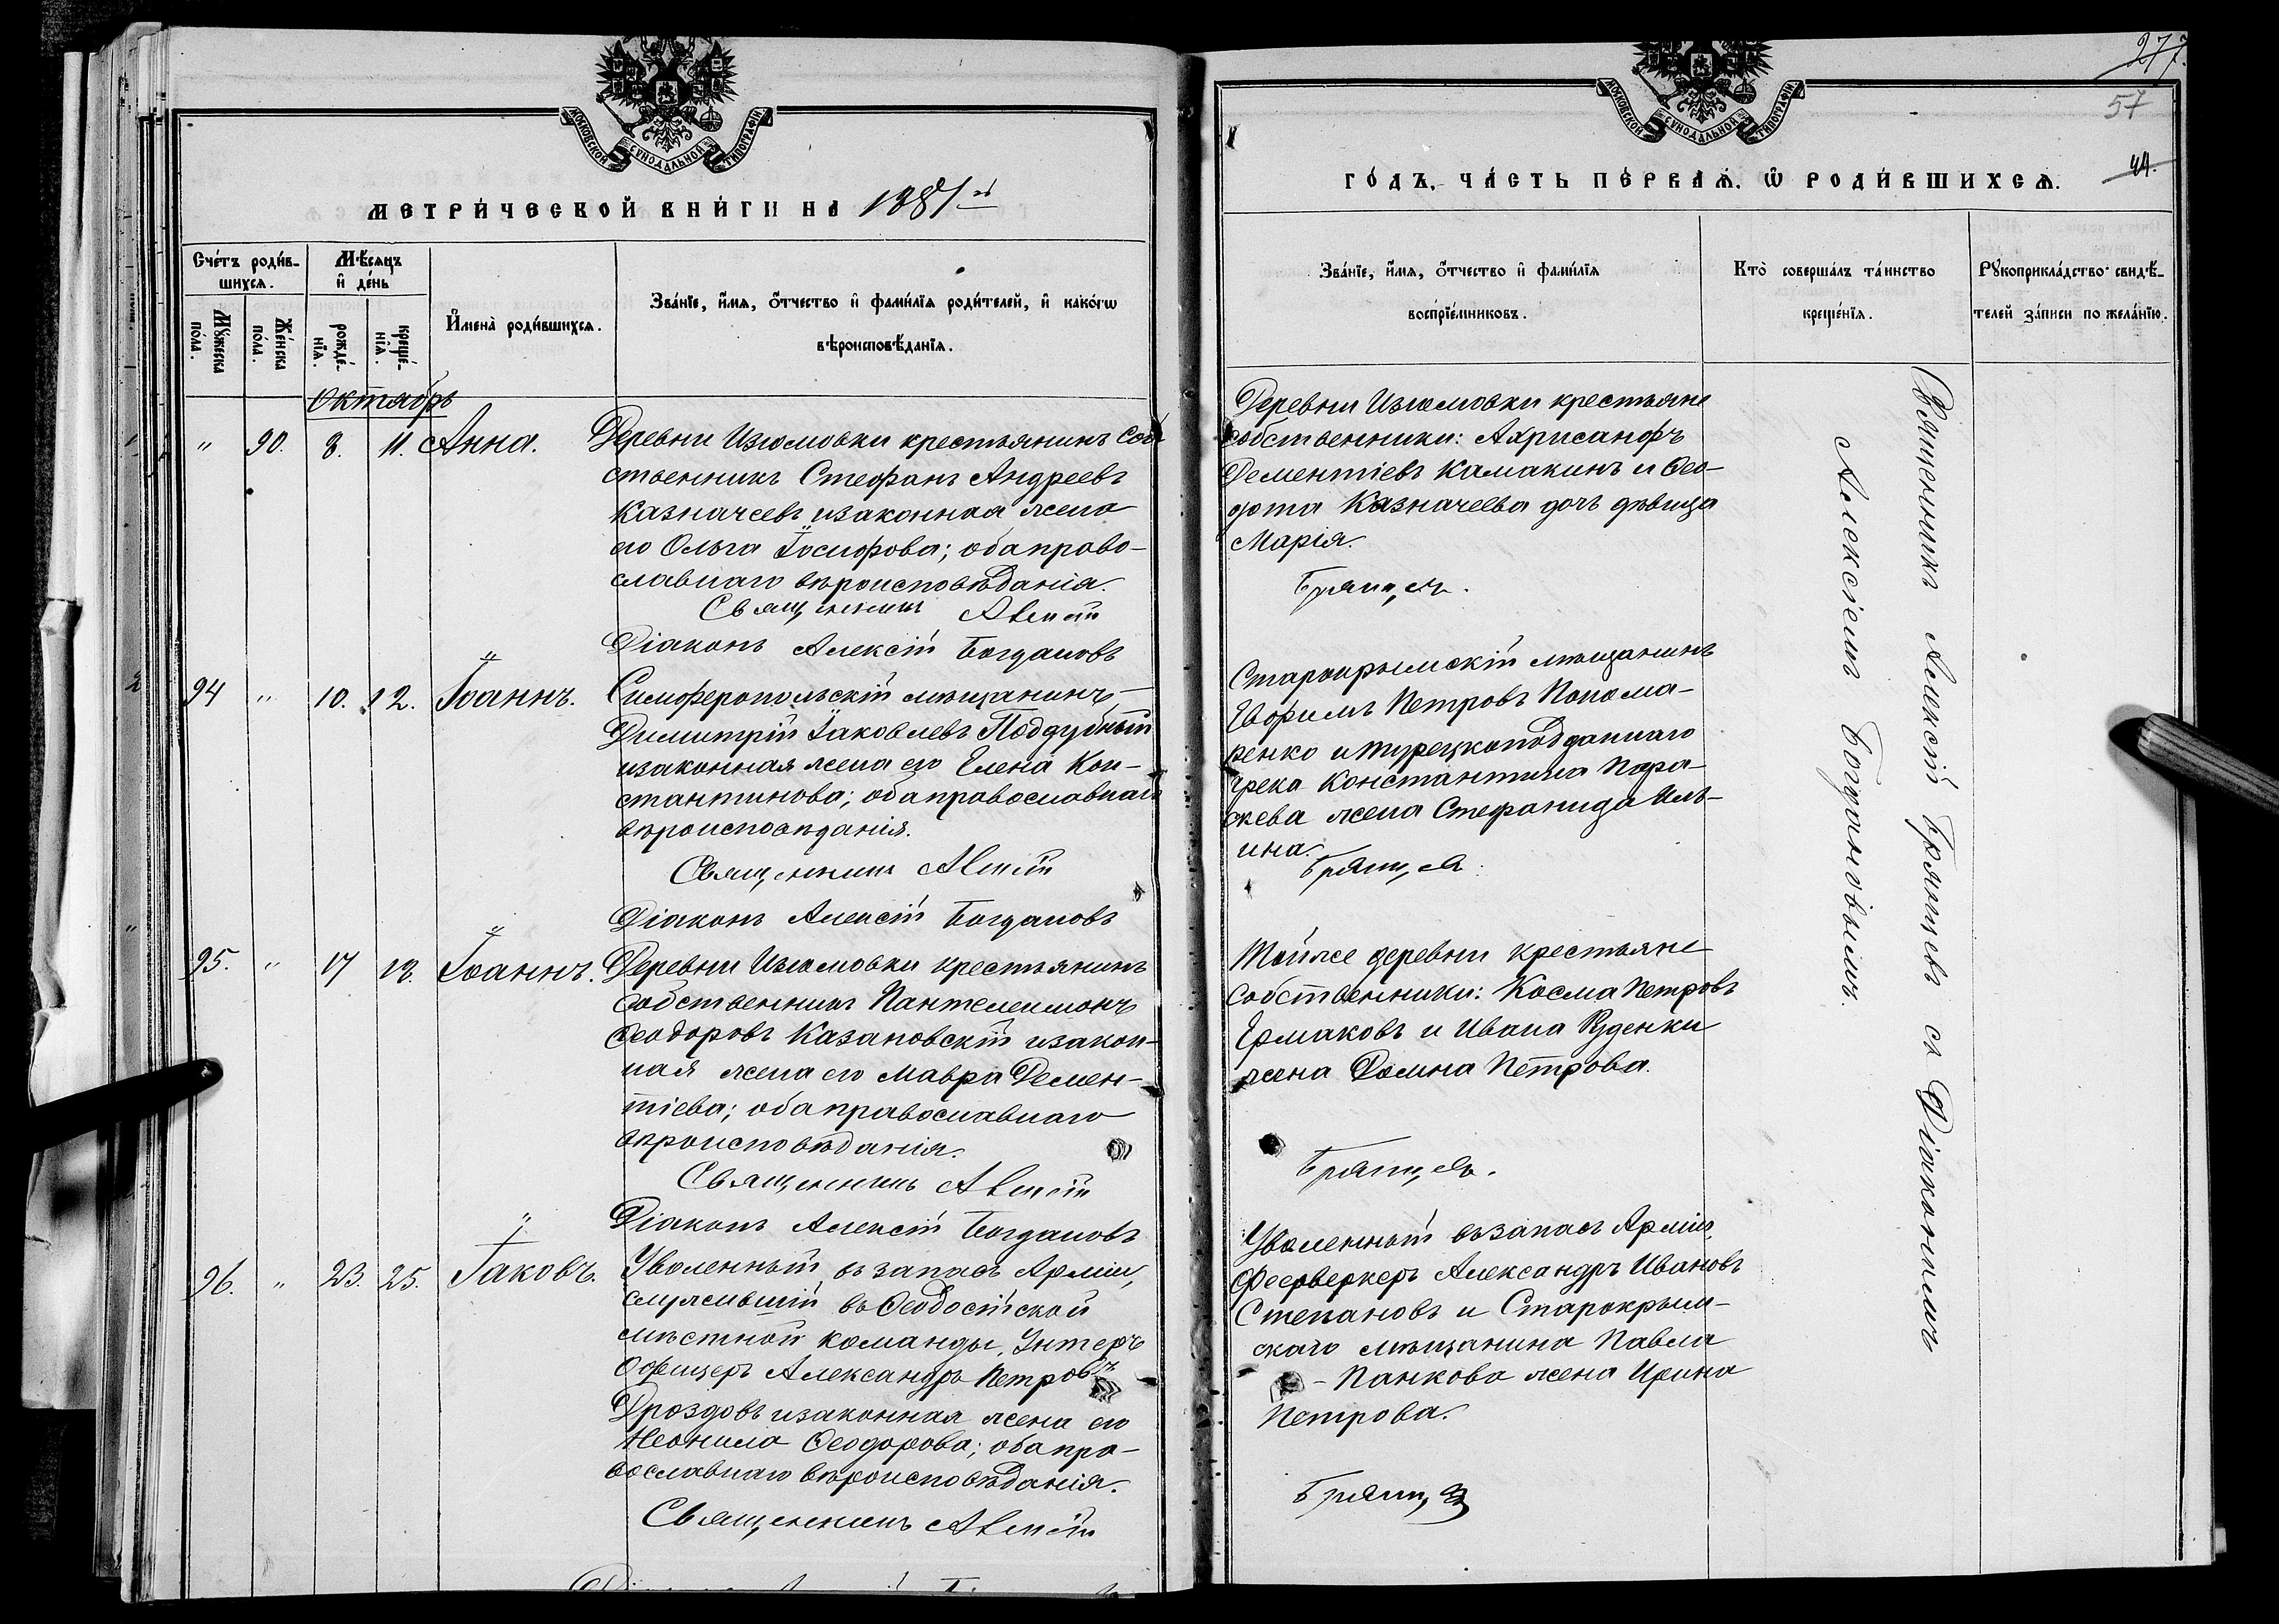 МОСКОВСКОЙ СУНОДАЛЬНОЙ ТИПОГРАФІИ
МЕТРИ́ЧЕСКОЙ КНИ́ГИ НА 1881й
Сче́тъ роди́в-
шихся.
Мѣ́сяцъ
и҆ де́нь
Мꙋ́жеска
по́ла.
Же́нска
по́ла.
рожде́-
нїя.
креще́-
нїя.
И҆мена̀ роди́вшихся.
Зва́нїе, и҆́мя, ѻ҆́тчество и҆ фами́лїя роди́телей, и҆ како́гѡ
вѣроисповѣ́данїя.
Октябрь
" 90. 8. 11. Анна.
Деревни Изюмовки крестьянинъ соб
ственникъ Стефанъ Андреевъ
Казначеевъ изаконная жена
его Ольга Іосифова; оба право-
славнаго вѣроисповѣданія.
Священникъ Алексій
Діаконъ Алексій Богдановъ
94 " 10. 12. Іоаннъ.
Симферопольскій мѣщанинъ
Димитрій Іаковлевъ Поддубный
изаконная жена его Елена Кон-
стантинова; оба православнаго
вѣроисповѣданія.
Священникъ Алексій
Діаконъ Алексій Богдановъ
95. " 17 18. Іоаннъ.
Деревни Изюмовки крестьянинъ
собственникъ Пантелеимонъ
Ѳеодоровъ Казановскій изакон-
ная жена его Мавра Демен-
тіева; оба православнаго
вѣроисповѣданія.
Священникъ Алексій
Діаконъ Алексій Богдановъ
96. " 23. 25. Іаковъ.
Уволенный въ запасъ Арміи,
служившій въ Ѳеодосійской
мѣстной команды, Унтеръ
Офицеръ Александръ Петровъ
Дроздовъ изаконная жена его
Неонила Ѳеодорова; оба пра-
вославнаго вѣроисповѣданія.
Священникъ Алексій
277.
57
44.
МОСКОВСКОЙ СУНОДАЛЬНОЙ ТИПОГРАФІИ
ГО́ДЪ, ЧА́СТЬ ПЕ́РВАЯ, Ѡ҆ РОДИ́ВШИХСЯ.
Зва́нїе, и҆́мя, ѻ҆́тчество и҆ фами́лїя
воспрїе́мниковъ.
Кто̀ соверша́лъ та́инство
креще́нїя.
Рꙋкоприкла́дство свидѣ́-
телей за́писи по жела́нїю.
Деревни Изюмовки крестьяне
собственники: Ахрисанфъ
Дементіевъ Камакинъ и Ѳео-
дота Казначеева дочь дѣвица
Марія.
Брянцевъ.
Старокрымскій мѣщанинъ
Евфимъ Петровъ Понома-
ренко и турецкоподданнаго
грека Константина Пара-
скева жена Стефанида Иль-
ина.
Брянцевъ
Тойже деревни крестьяне
собственники: Косма Петровъ
Ермаковъ и Ивана Руденки
жена Домна Петрова.
Брянцевъ.
Уволенный въ запасъ Арміи,
Феерверкеръ Александръ Ивановъ
Степановъ и Старокрым-
скаго мѣщанина Павла
Панкова жена Ирина
Петрова.
Брянцевъ
Священникъ Алексій Брянцевъ съ Діакономъ
Алексіемъ Богдановымъ.